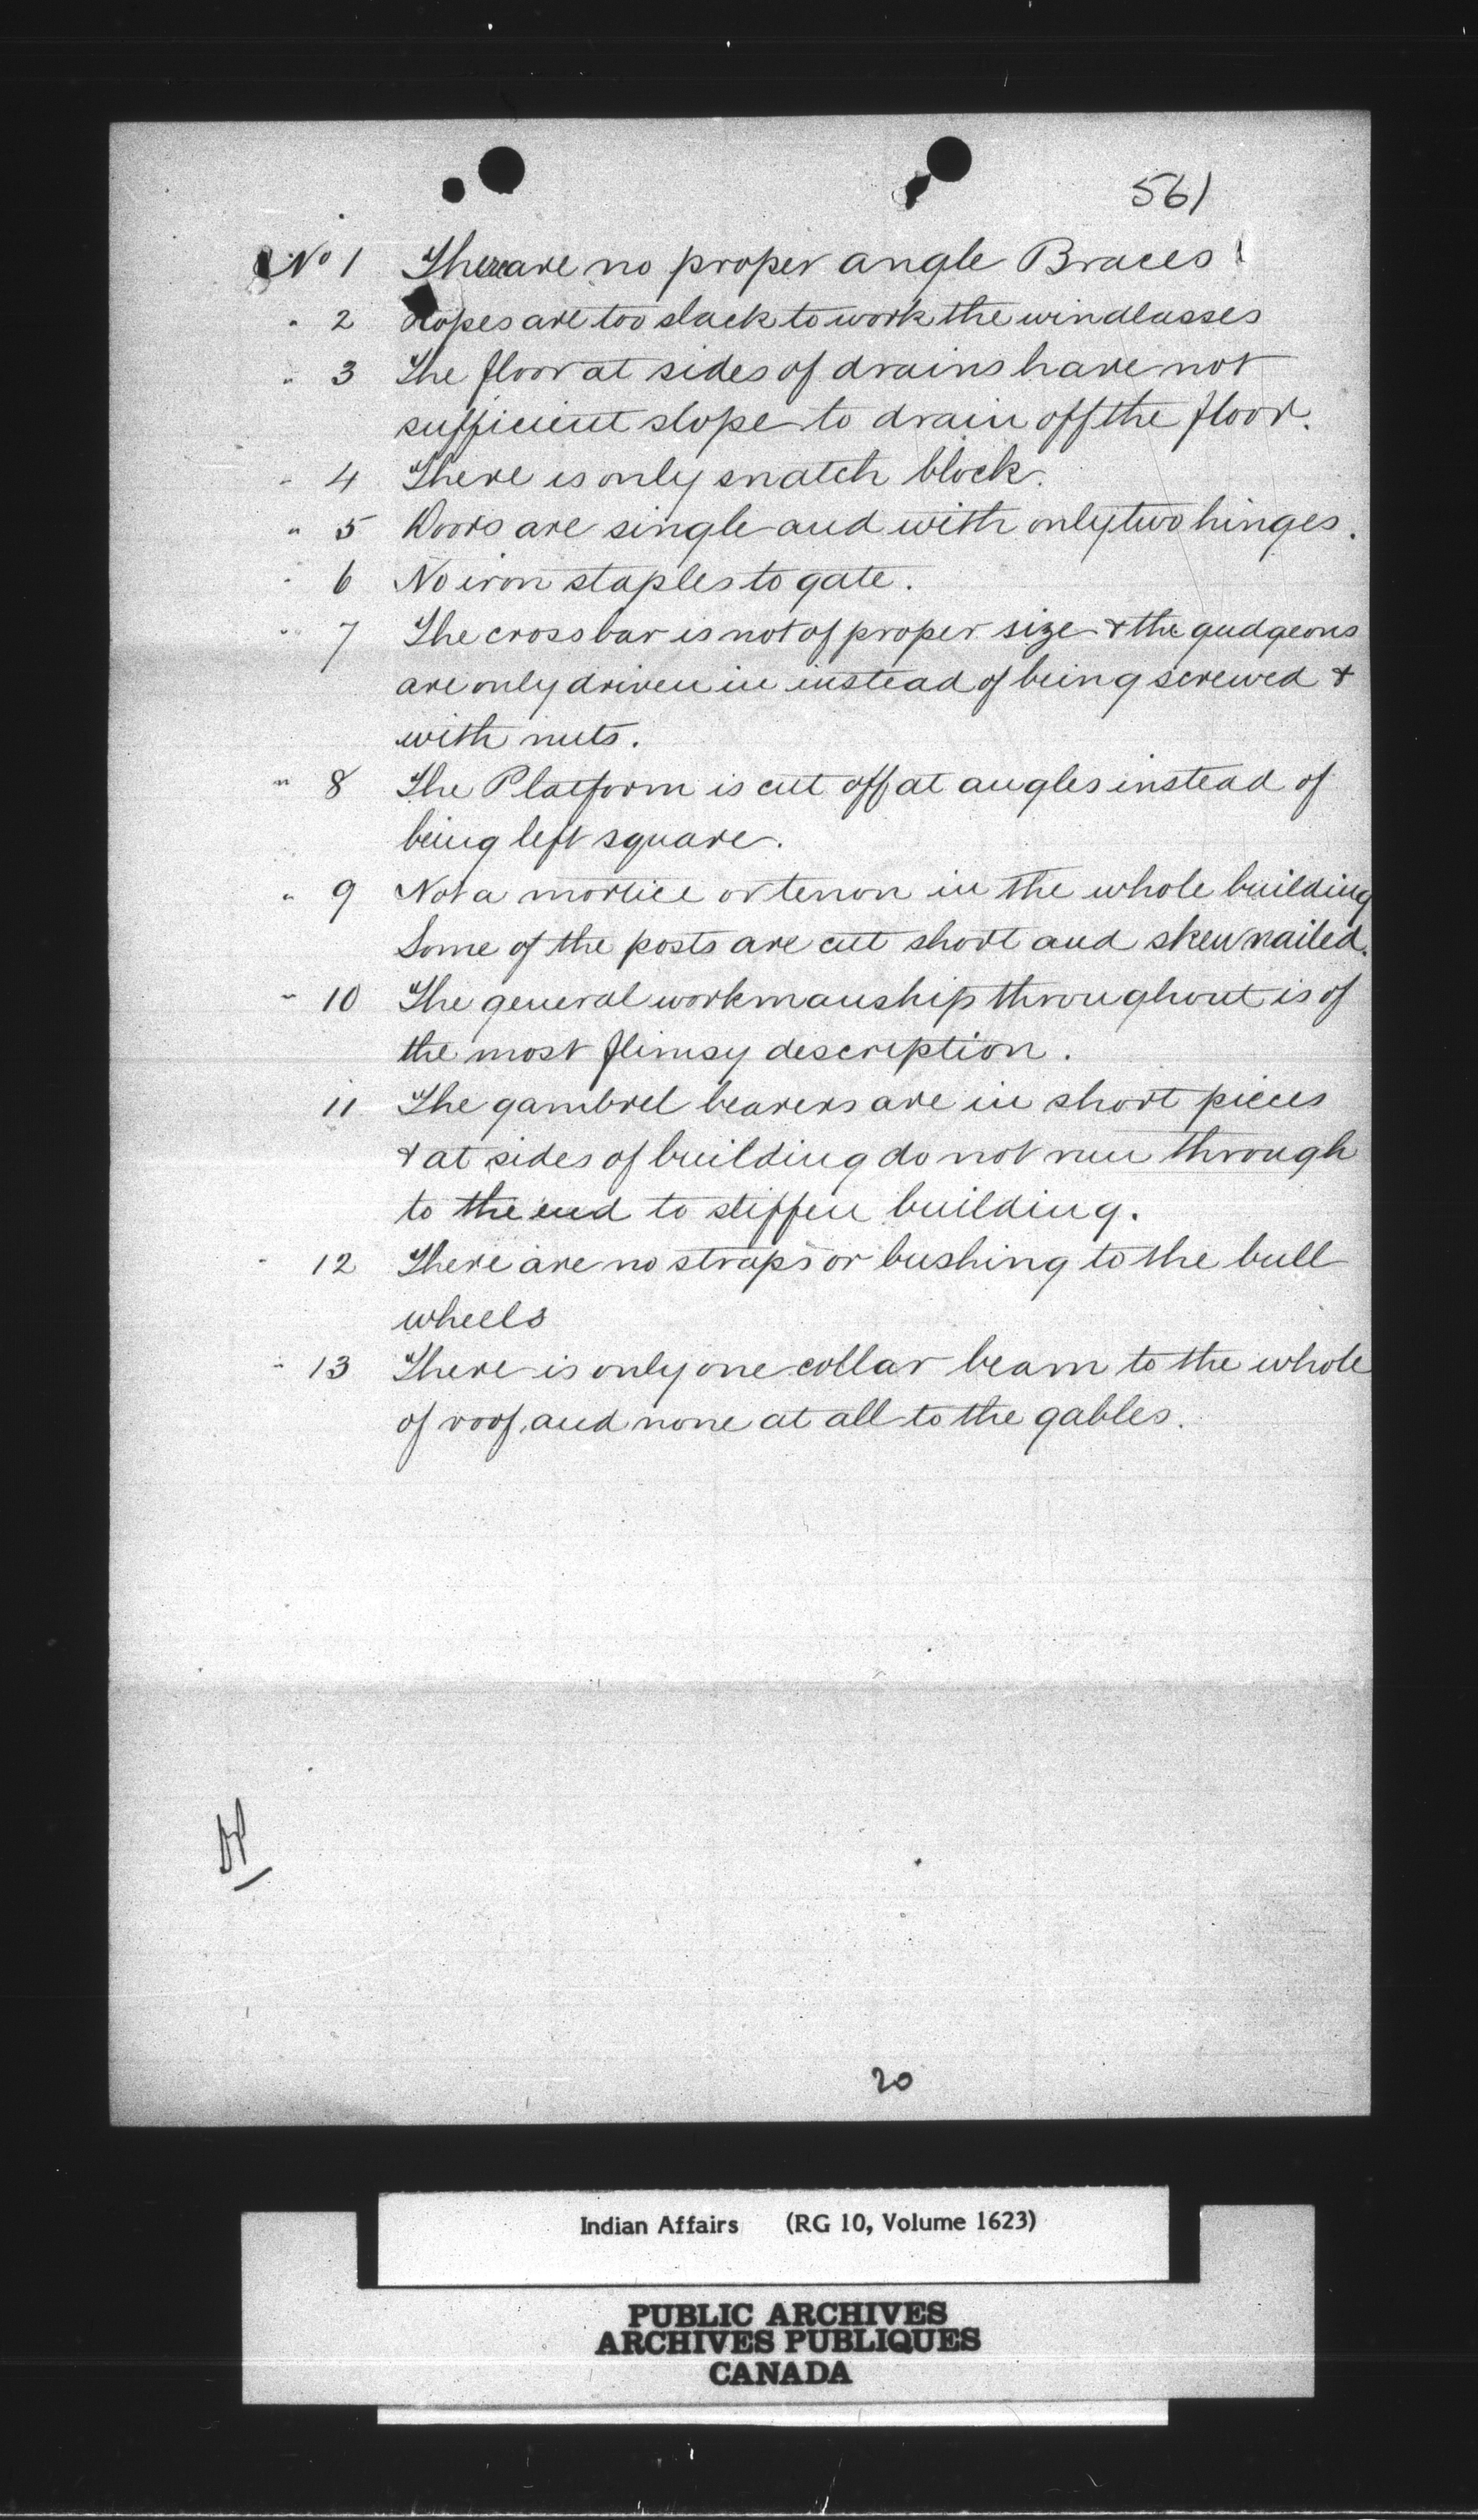 561
No 1 There are no proper angle Braces
" 2 Ropes are too slack to work the windlasses
" 3 The floor at sides of drains have not
sufficient slope to drain off the floor.
" 4 There is only snatch block.
" 5 Doors are single and with only two hinges.
" 6 No iron staples to gate.
" 7 The cross bar is not of proper size & the gudgeons
are only driven in instead of being screwed &
with nuts.
" 8 The Platform is cut off at angles instead of
being left square.
" 9 Not a mortice or tenon in the whole building
Some of the posts are cut short and skew nailed.
" 10 The general workmanship throughout is of
the most flimsy description.
11 The gambrel bearers are in short pieces
& at sides of building do not run through
to the end to stiffen building.
" 12 There are no straps or bushing to the bull
wheels
" 13 There is only one collar beam to the whole
of roof, and none at all to the gables.
20
Indian Affairs (RG 10, Volume 1623)
PUBLIC ARCHIVES
ARCHIVES PUBLIQUES
CANADA